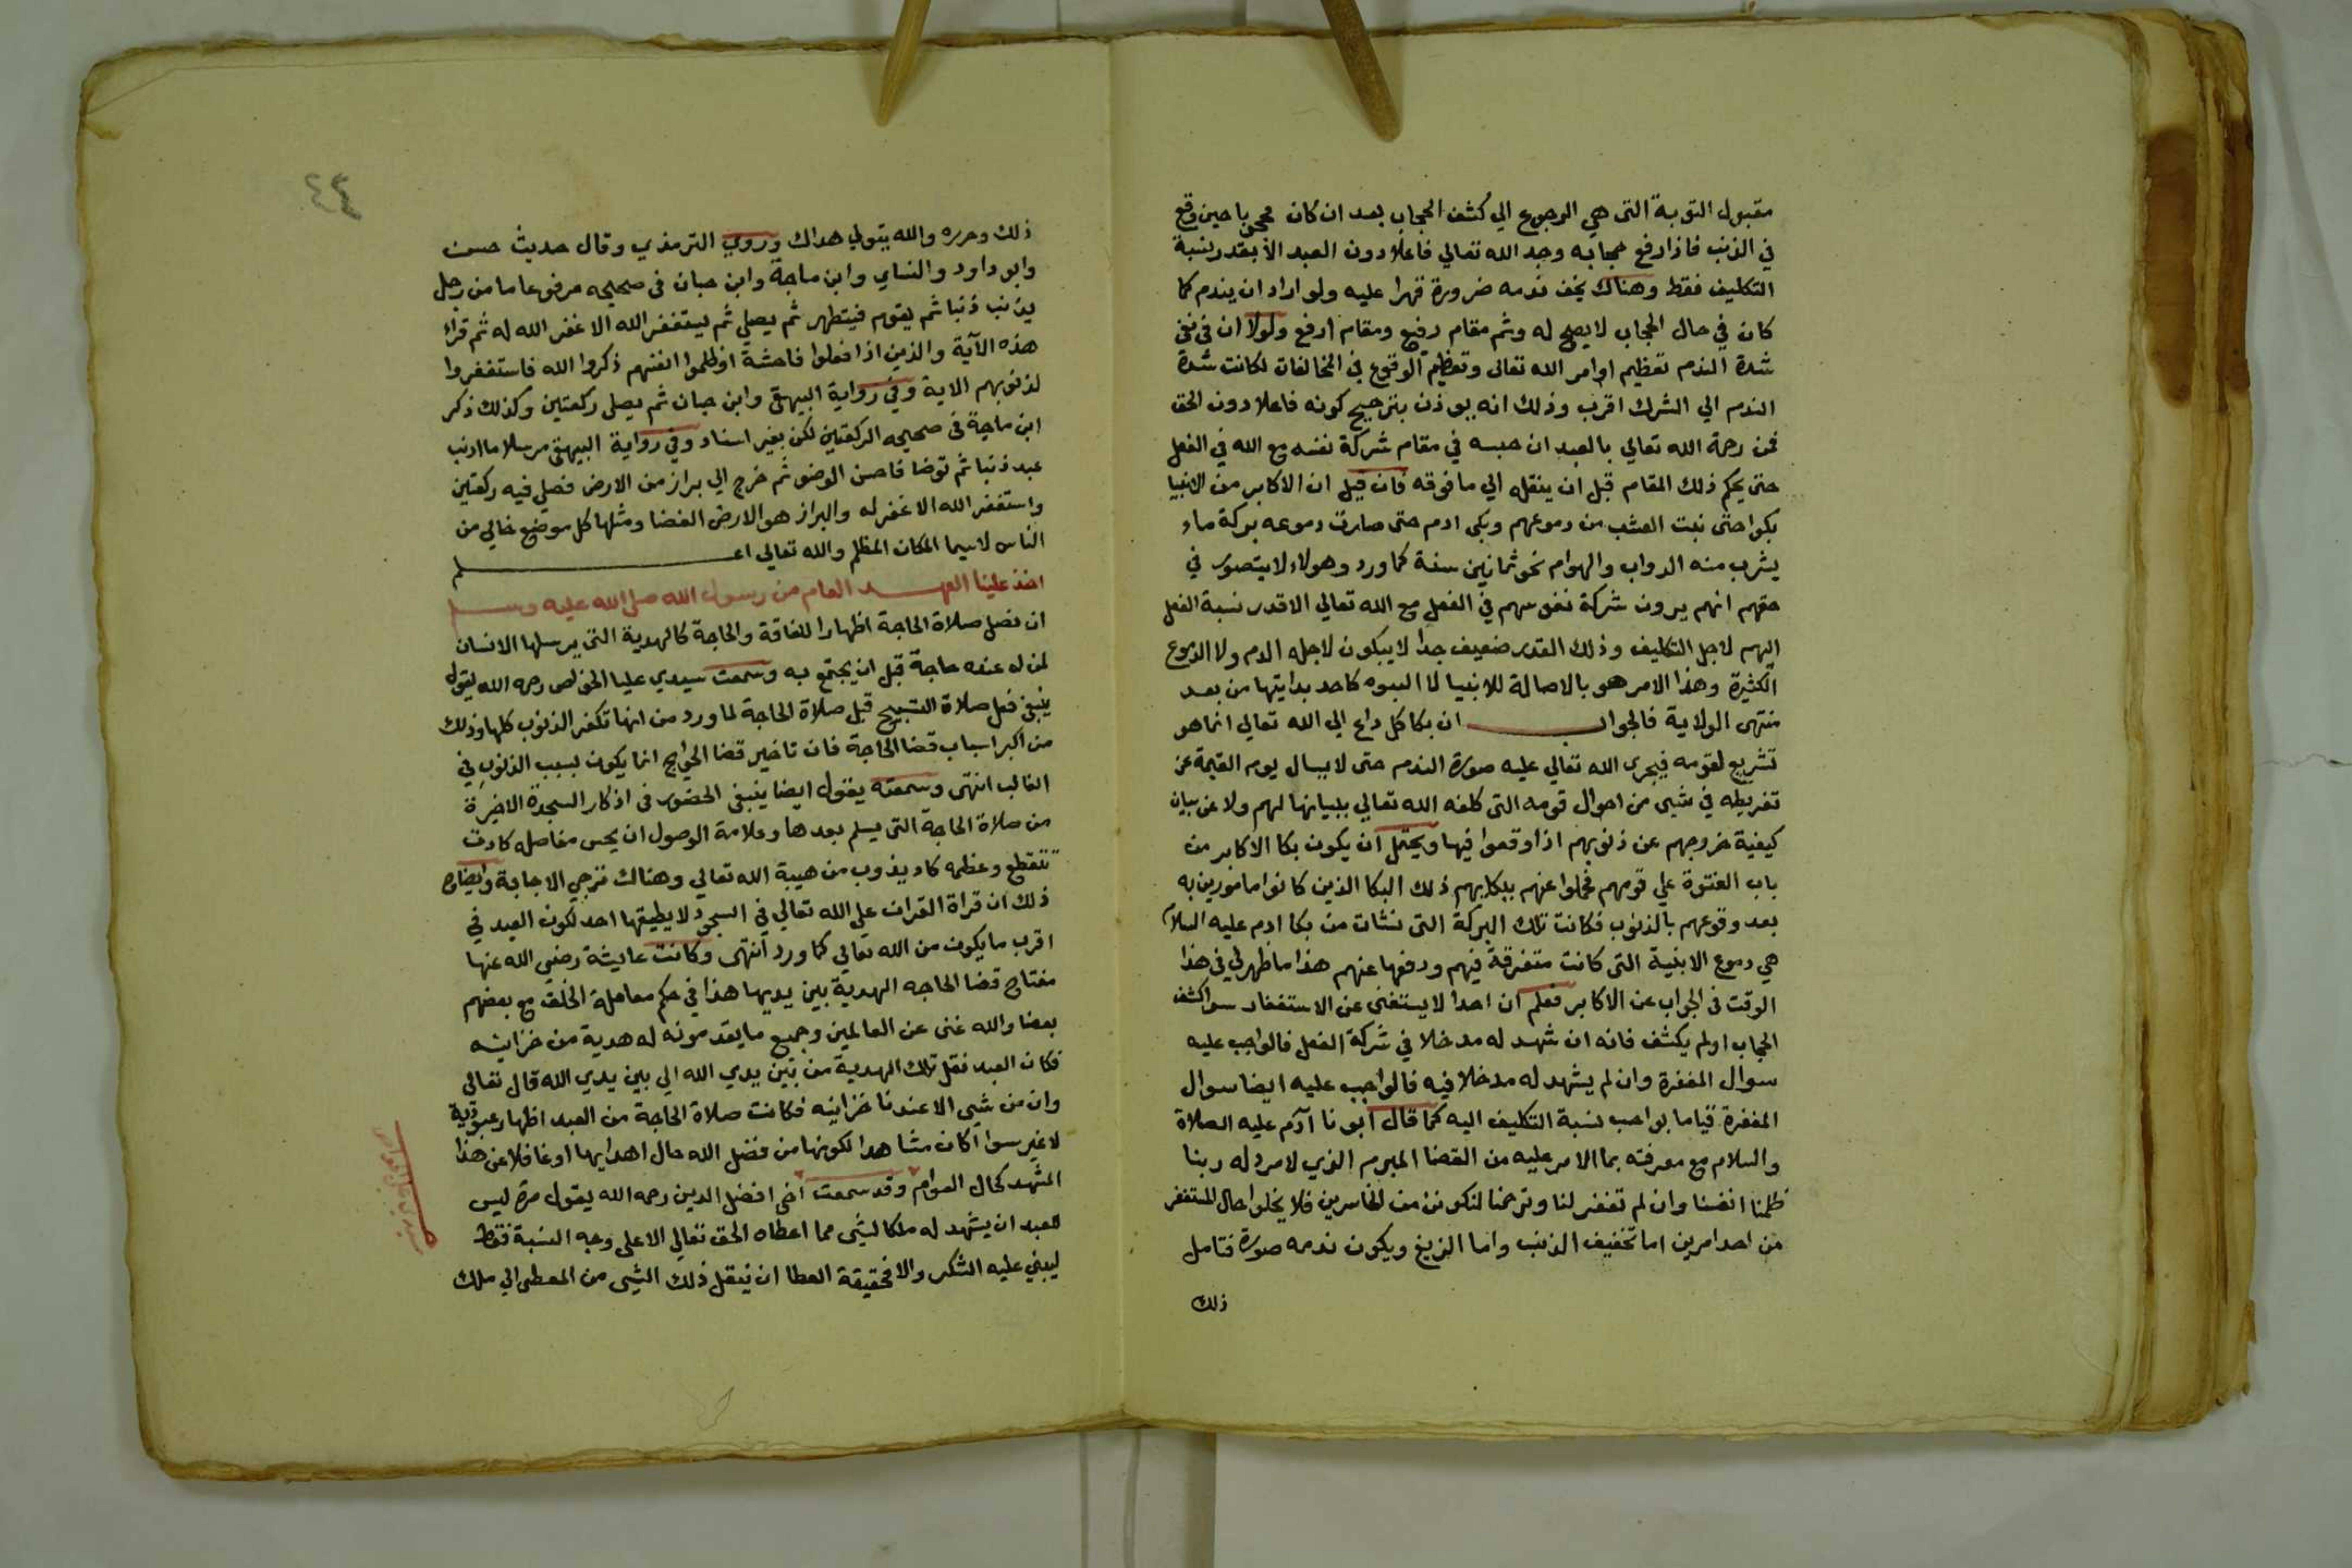 مقبول التوبة التى هي الرجوع الي كشف الحجاب بعد ان كان محجوبا حين وقع
في الذنب فاذا رفع حجابه وجد الله تعالي فاعلا دون العبد الا بقدر نسبة
التكليف فقط وهناك يخف ندمه ضرورة قهرا عليه ولو اراد ان يندم كما
كان في حال الحجاب لا يصح له وثم مقام رفيع ومقام ارفع ولولا ان في نفى
شدة الندم تعظيم اوامر الله تعالى وتعظيم الوقوع في المخالفات لكانت شدة
الندم الي الشرك اقرب وذلك انه يوذن بترجيح كونه فاعلا دون الحق
فمن رحمة الله تعالي بالعبد ان حبسه في مقام شركة نفسه مع الله في الفعل
حتى يحكم ذلك المقام قبل ان ينقله الي ما فوقه فان قيل ان الاكابر من الانبيا
بكوا حتى نبت العشب من دموعهم وبكى ادم حتى صارت دموعه بركة ماء
يشرب منه الدواب والهوام نحو ثمانين سنة كما ورد وهولاء لا يتصور في
حقهم انهم يرون شركة نفوسهم في الفعل مع الله تعالي الا قدر نسبة الفعل
اليهم لاجل التكليف وذلك القدر ضعيف جدا لا يبكون لاجله الدم ولا الدموع
الكثيرة وهذا الامر هو بالاصالة للانبيا لما النبوه كاحد بدايتها من بعد
منتهى الولاية فالجواب ان بكا كل داع الي الله تعالي انما هو
تشريع لقومه فيجرى الله تعالي عليه صورة الندم حتى لا يسال يوم القيمة عن
تفريطه في شي من احوال قومه التى كلفه الله تعالي ببيانها لهم ولا عن بيان
كيفية خروجهم عن ذنوبهم اذا وقعوا فيها ويحتمل ان يكون بكا الاكابر من
باب الفتوة علي قومهم فحملوا عنهم ببكايهم ذلك البكا الذين كانوا مامورين به
بعد وقوعهم بالذنوب فكانت تلك البركة التى نشات من بكا ادم عليه السلام
هي دموع الابنية التى كانت متفرقة فيهم ودفعها عنهم هذا ما ظهر لي في هذا
الوقت في الجواب عن الاكابر فعلم ان احدا لا يستغنى عن الاستغفار سوا كشف
الحجاب او لم يكشف فانه ان شهد له مدخلا في شركة الفعل فالواجب عليه
سوال المغفرة وان لم يشهد له مدخلا فيه فالواجب عليه ايضا سوال
المغفرة قياما بواجب نسبة التكليف اليه كما قال ابونا آدم عليه الصلاة
والسلام مع معرفته بما الامر عليه من القضا المبرم الذي لا مرد له ربنا
ظلمنا انفسنا وان لم تغفر لنا وترحمنا لنكونن من الخاسرين فلا يخلوا حال المستغفر
من احد امرين اما تخفيف الذنب واما الزيغ ويكون ندمه صورة فتامل
ذلك
٤٤
ذلك وحرره والله يتولي هداك وروي الترمذي وقال حديث حسن
وابو داود والنساي وابن ماجة وابن حبان في صحيحه مرفوعا ما من رجل
يذنب ذنبا ثم يقوم فيتطهر ثم يصلي ثم يستغفر الله الا غفر الله له ثم قراء
هذه الآية والذين اذا فعلوا فاحشة او ظلموا انفسهم ذكروا الله فاستغفروا
لذنوبهم الاية وفي رواية البيهقى وابن حبان ثم يصلى ركعتين وكذلك ذكر
ابن ماجة في صحيحه الركعتين لكن بغير اسناد وفي رواية البيهقى مرسلا ما اذنب
عبد ذنبا ثم توضا فاحسن الوضو ثم خرج الي براز من الارض فصلي فيه ركعتين
واستغفر الله الا غفر له والبراز هو الارض الفضا ومثلها كل موضع خالي من
الناس لا سيما المكان المظلم والله تعالي اعلم
اخذ علينا العهد العام من رسول الله صلى الله عليه وسلم
ان نصل صلاة الحاجة اظهارا للفاقة والحاجة كالهدية التى يرسلها الانسان
لمن له عنده حاجة قبل ان يجتمع به وسمعت سيدي عليا الخواص رحمه الله يقول
ينبغى فعل صلاة التسبيح قبل صلاة الحاجة لما ورد من انها تكفر الذنوب كلها وذلك
من اكبر اسباب قضا الحاجة فان تاخير قضا الحوايج انما يكون بسبب الذنوب في
الغالب انتهى وسمعته يقول ايضا ينبغى الحضور في اذكار السجدة الاخيرة
من صلاة الحاجة التى يسلم بعدها وعلامة الوصول ان يحس مفاصله كادت
تتقطع وعظمه كاد يذوب من هيبة الله تعالي وهناك ترجي الاجابة وايضاح
ذلك ان قراة القران علي الله تعالي في السجود لا يطيقها احد لكون العبد في
اقرب ما يكون من الله تعالي كما ورد انتهى وكانت عايشة رضي الله عنها
مفتاح قضا الحاجه الهدية بين يديها هذا في حكم معاملة الخلق مع بعضهم
بعضا والله غنى عن العالمين وجميع ما يقدمونه له هدية من خزاينه
فكان العبد نقل تلك الهدية من بين يدي الله الي بين يدي الله قال تعالى
وان من شي الا عندنا خزاينه فكانت صلاة الحاجة من العبد اظهار عبودية
لا غير سوا اكان مشاهدا لكونها من فضل الله حال اهدايها او غافلا عن هذا
المشهد كحال العوام وقد سمعت اخى افضل الدين رحمه الله يقول مرة ليس
للعبد ان يشهد له ملكا لشي مما اعطاه الحق تعالي الا على وجه النسبة فقط
ليبني عليه الشكر والا فحقيقة العطا ان ينقل ذلك الشي من المعطى الي ملك